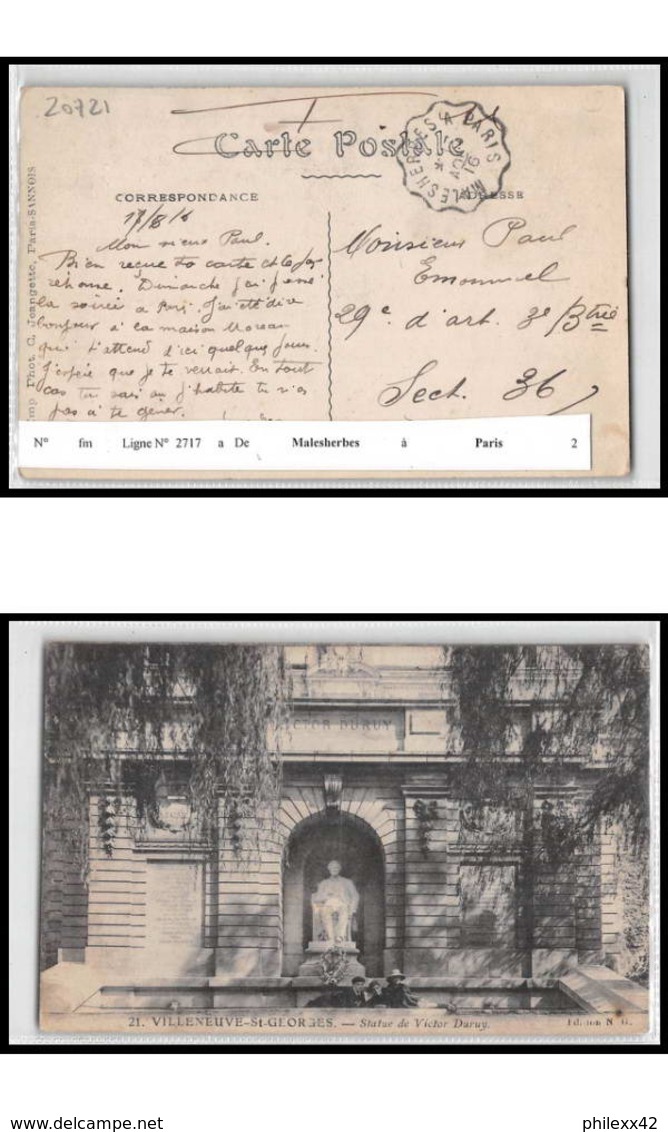 20721
Carte Postale
MALESHERBES A PARIS
CORRESPONDANCE
ADRESSE
17/8/16
Mon vieux Paul.
Bien reçue ta carte et la
Dimanche j'ai passé
la soirée a Paris. J'ai été dire
bonjour à la maison Moreau
qui t'attend d'ici quelques jours.
J'espère que je te verrait. En tout
cas tu sais ou j'habite tu n'as
pas à te gener.
Monsieur Paul
Emonnuel
29e d'art. 3e Btrie
Sect. 36
Imp. Phot. G. Jeangette, Paris-SANNOIS
N° fm Ligne N° 2717 a De Malesherbes à Paris 2
VICTOR DURUY
21. VILLENEUVE-St-GEORGES. — Statue de Victor Duruy.
Edition N. G.
delcampe.net
philexx42